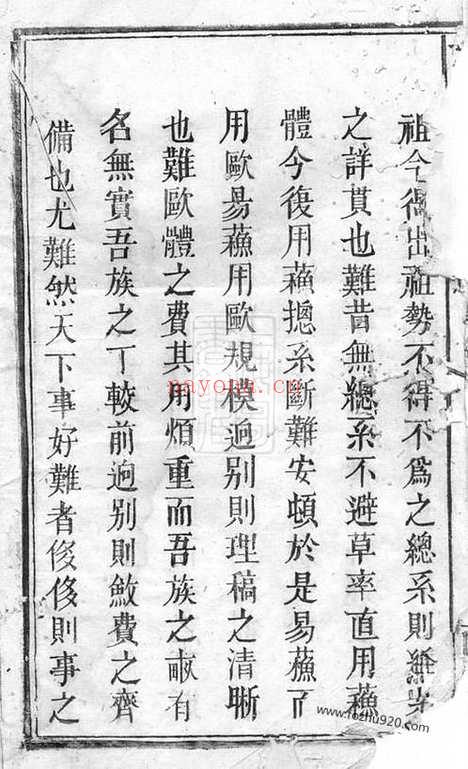 祖今得出祖勢不得不爲之總系則
之詳貫也難昔無總系不避草率直用蘓
體今復用蘓揔系斷難安頓於是易蘓了
用歐易蘓用歐規模逈别則理稿之清晰
也難歐體之費其用煩重而吾族之畝有
名無實吾族之丁較前逈别則斂費之齊
備也尤難然天下事好難者俊俊則事之
nayona.cn
www.fozhu920.com